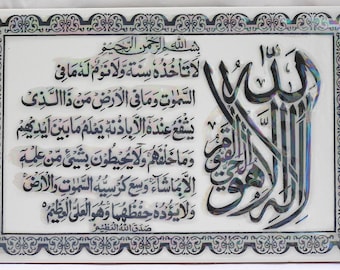 بسم الله الرحمن الرحيم
الله لا إله إلا هو الحي القيوم
لا تأخذه سنة ولا نوم له ما في
السموات وما في الأرض من ذا الذي
يشفع عنده إلا بإذنه يعلم ما بين أيديهم
وما خلفهم ولا يحيطون بشيء من علمه
إلا بما شاء وسع كرسيه السموات والأرض
ولا يؤده حفظهما وهو العلي العظيم
صدق الله العظيم